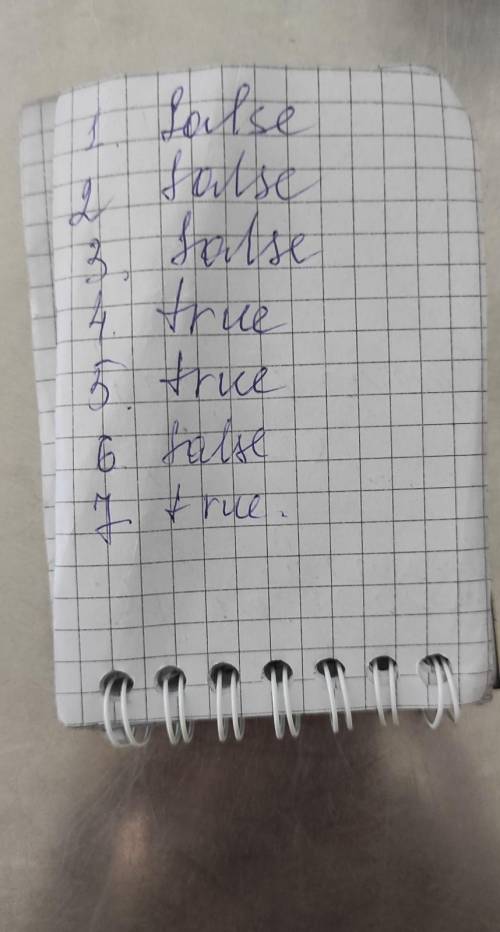 1. false
2 false
3. false
4. true
5. true
6 false
7 true.